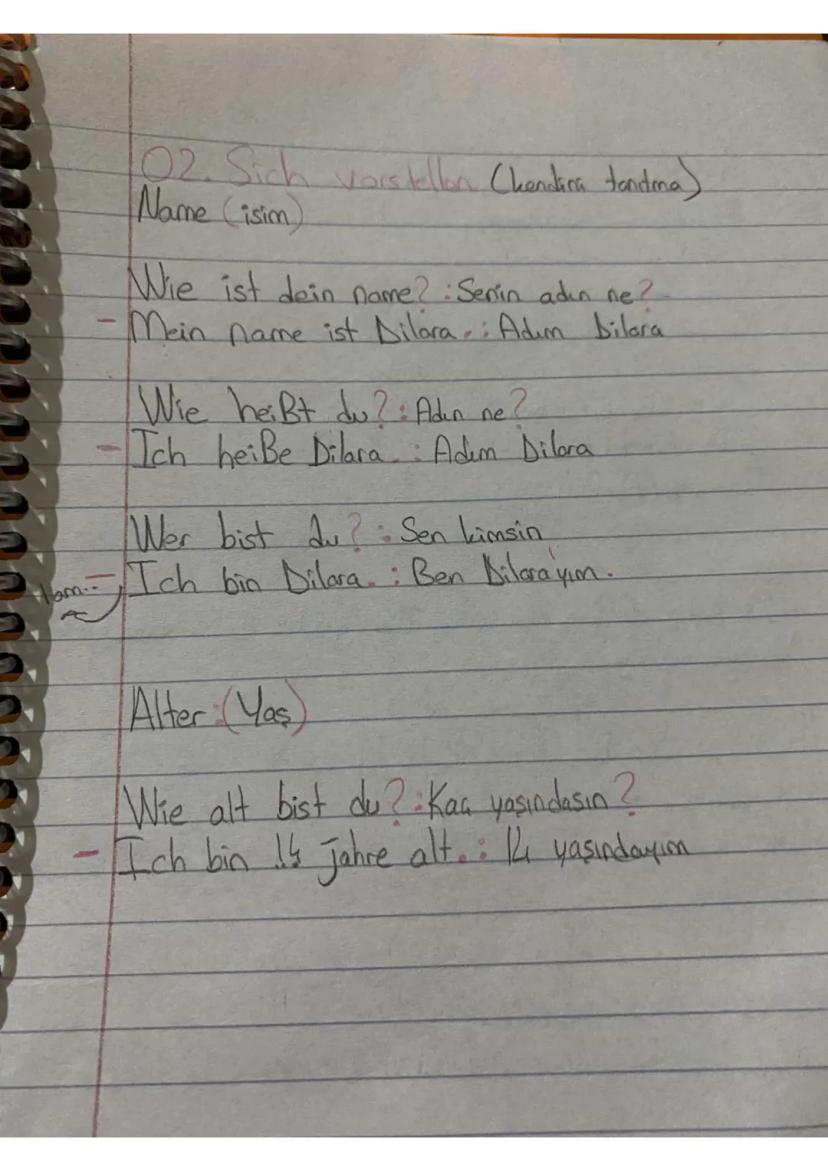 02. Sich vorstellen (kendini tanıtma)
Name (isim)
Wie ist dein name? : Senin adın ne?
- Mein name ist Dilara. : Adım Dilara
Wie heißt du? : Adın ne?
- Ich heiße Dilara. : Adım Dilara
Wer bist du? : Sen kimsin
- Ich bin Dilara. : Ben Dilara'yım.
Alter: (Yaş)
Wie alt bist du? : Kaç yaşındasın?
- Ich bin 14 jahre alt. : 14 yaşındayım